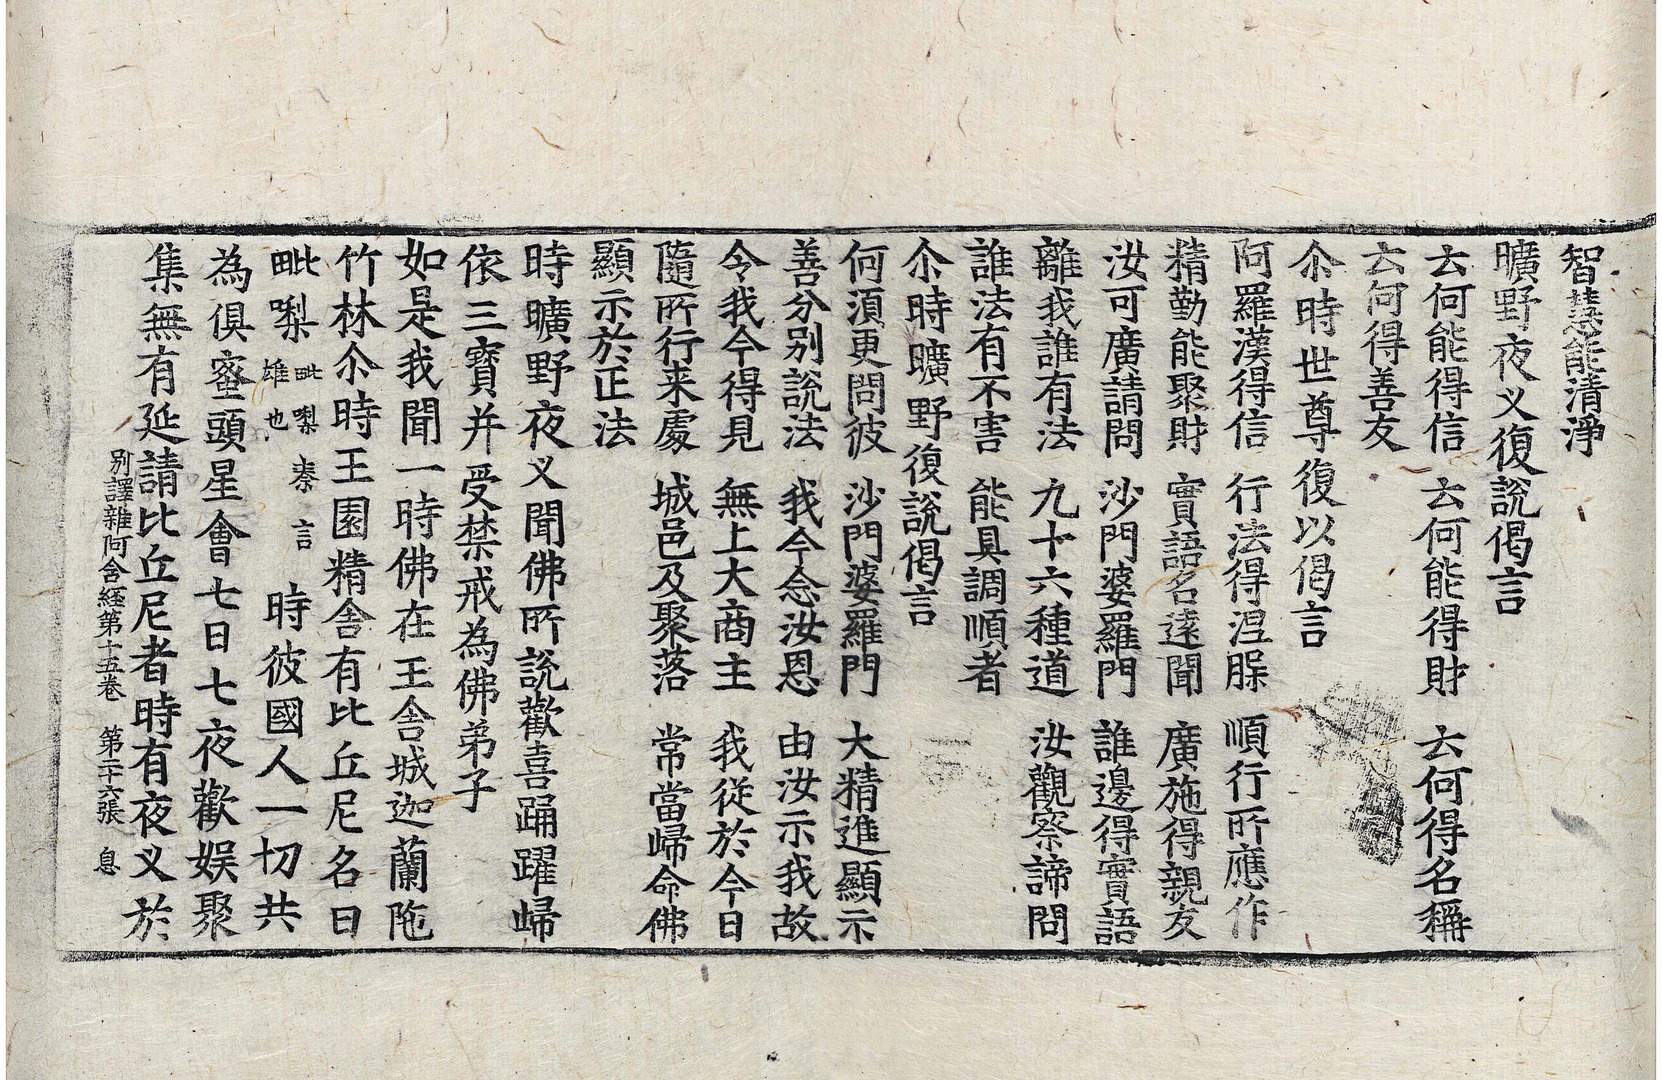 智慧能清淨
曠野夜义復說偈言
云何能得信　云何能得財　云何得名稱
云何得善友
尒時世尊復以偈言
阿羅漢得信　行法得涅䏶　順行所應作
精勤能聚財　實語名遠聞　廣施得親友
汝可廣請問　沙門婆羅門　誰邊得實語
離我誰有法　九十六種道　汝觀察諦問
誰法有不害　能具調順者
尒時曠野復說偈言
何須更問彼　沙門婆羅門　大精進顯示
善分別說法　我今念汝恩　由汝示我故
令我今得見　無上大商主　我從於今日
隨所行来處　城邑及聚落　常當歸命佛
顯示於正法
時曠野夜义聞佛所說歡喜踊躍歸
依三寶并受禁戒為佛弟子
如是我聞一時佛在王舍城迦蘭陁
竹林尒時王園精舍有比丘尼名曰
毗㗚毗㗚秦言雄也時彼國人一切共
為俱蜜頭星會七日七夜歡娛聚
集無有延請比丘尼者時有夜义於
別譯雜阿含經第十五卷　第二十六張　息